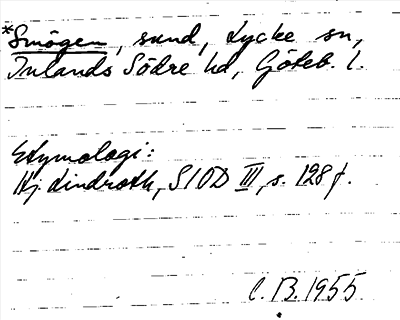 *Smögen, sund, Lycke sn,
Inlands Södre hd, Göteb. l.
Etymologi:
Hj. Lindroth, SIOD III, s. 128 f.
C. B. 1955